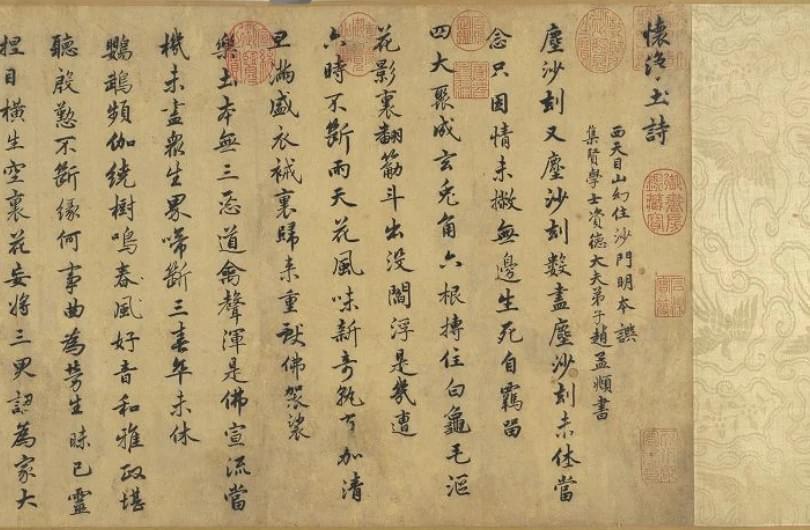 懷淨土詩
西天目山幻住沙門明本譔
集賢學士資德大夫弟子趙孟頫書
塵沙刧又塵沙刧數盡塵沙刧未休當
念只因情未撇無邊生死自羈留
四大聚成玄兔角六根摶住白龜毛漚
花影裏翻觔斗出没閻浮是幾遭
六時不斷雨天花風味新奇孰可加清
旦滿盛衣裓裏歸来重獻佛袈裟
樂土本無三惡道禽聲渾是佛宣流當
機未盡衆生界啼斷三春卒未休
鸚鵡頻伽繞樹鳴春風好音和雅政堪
聽慇懃不斷緣何事曲為勞生昧己靈
捏目橫生空裏花妄將三界認為家大